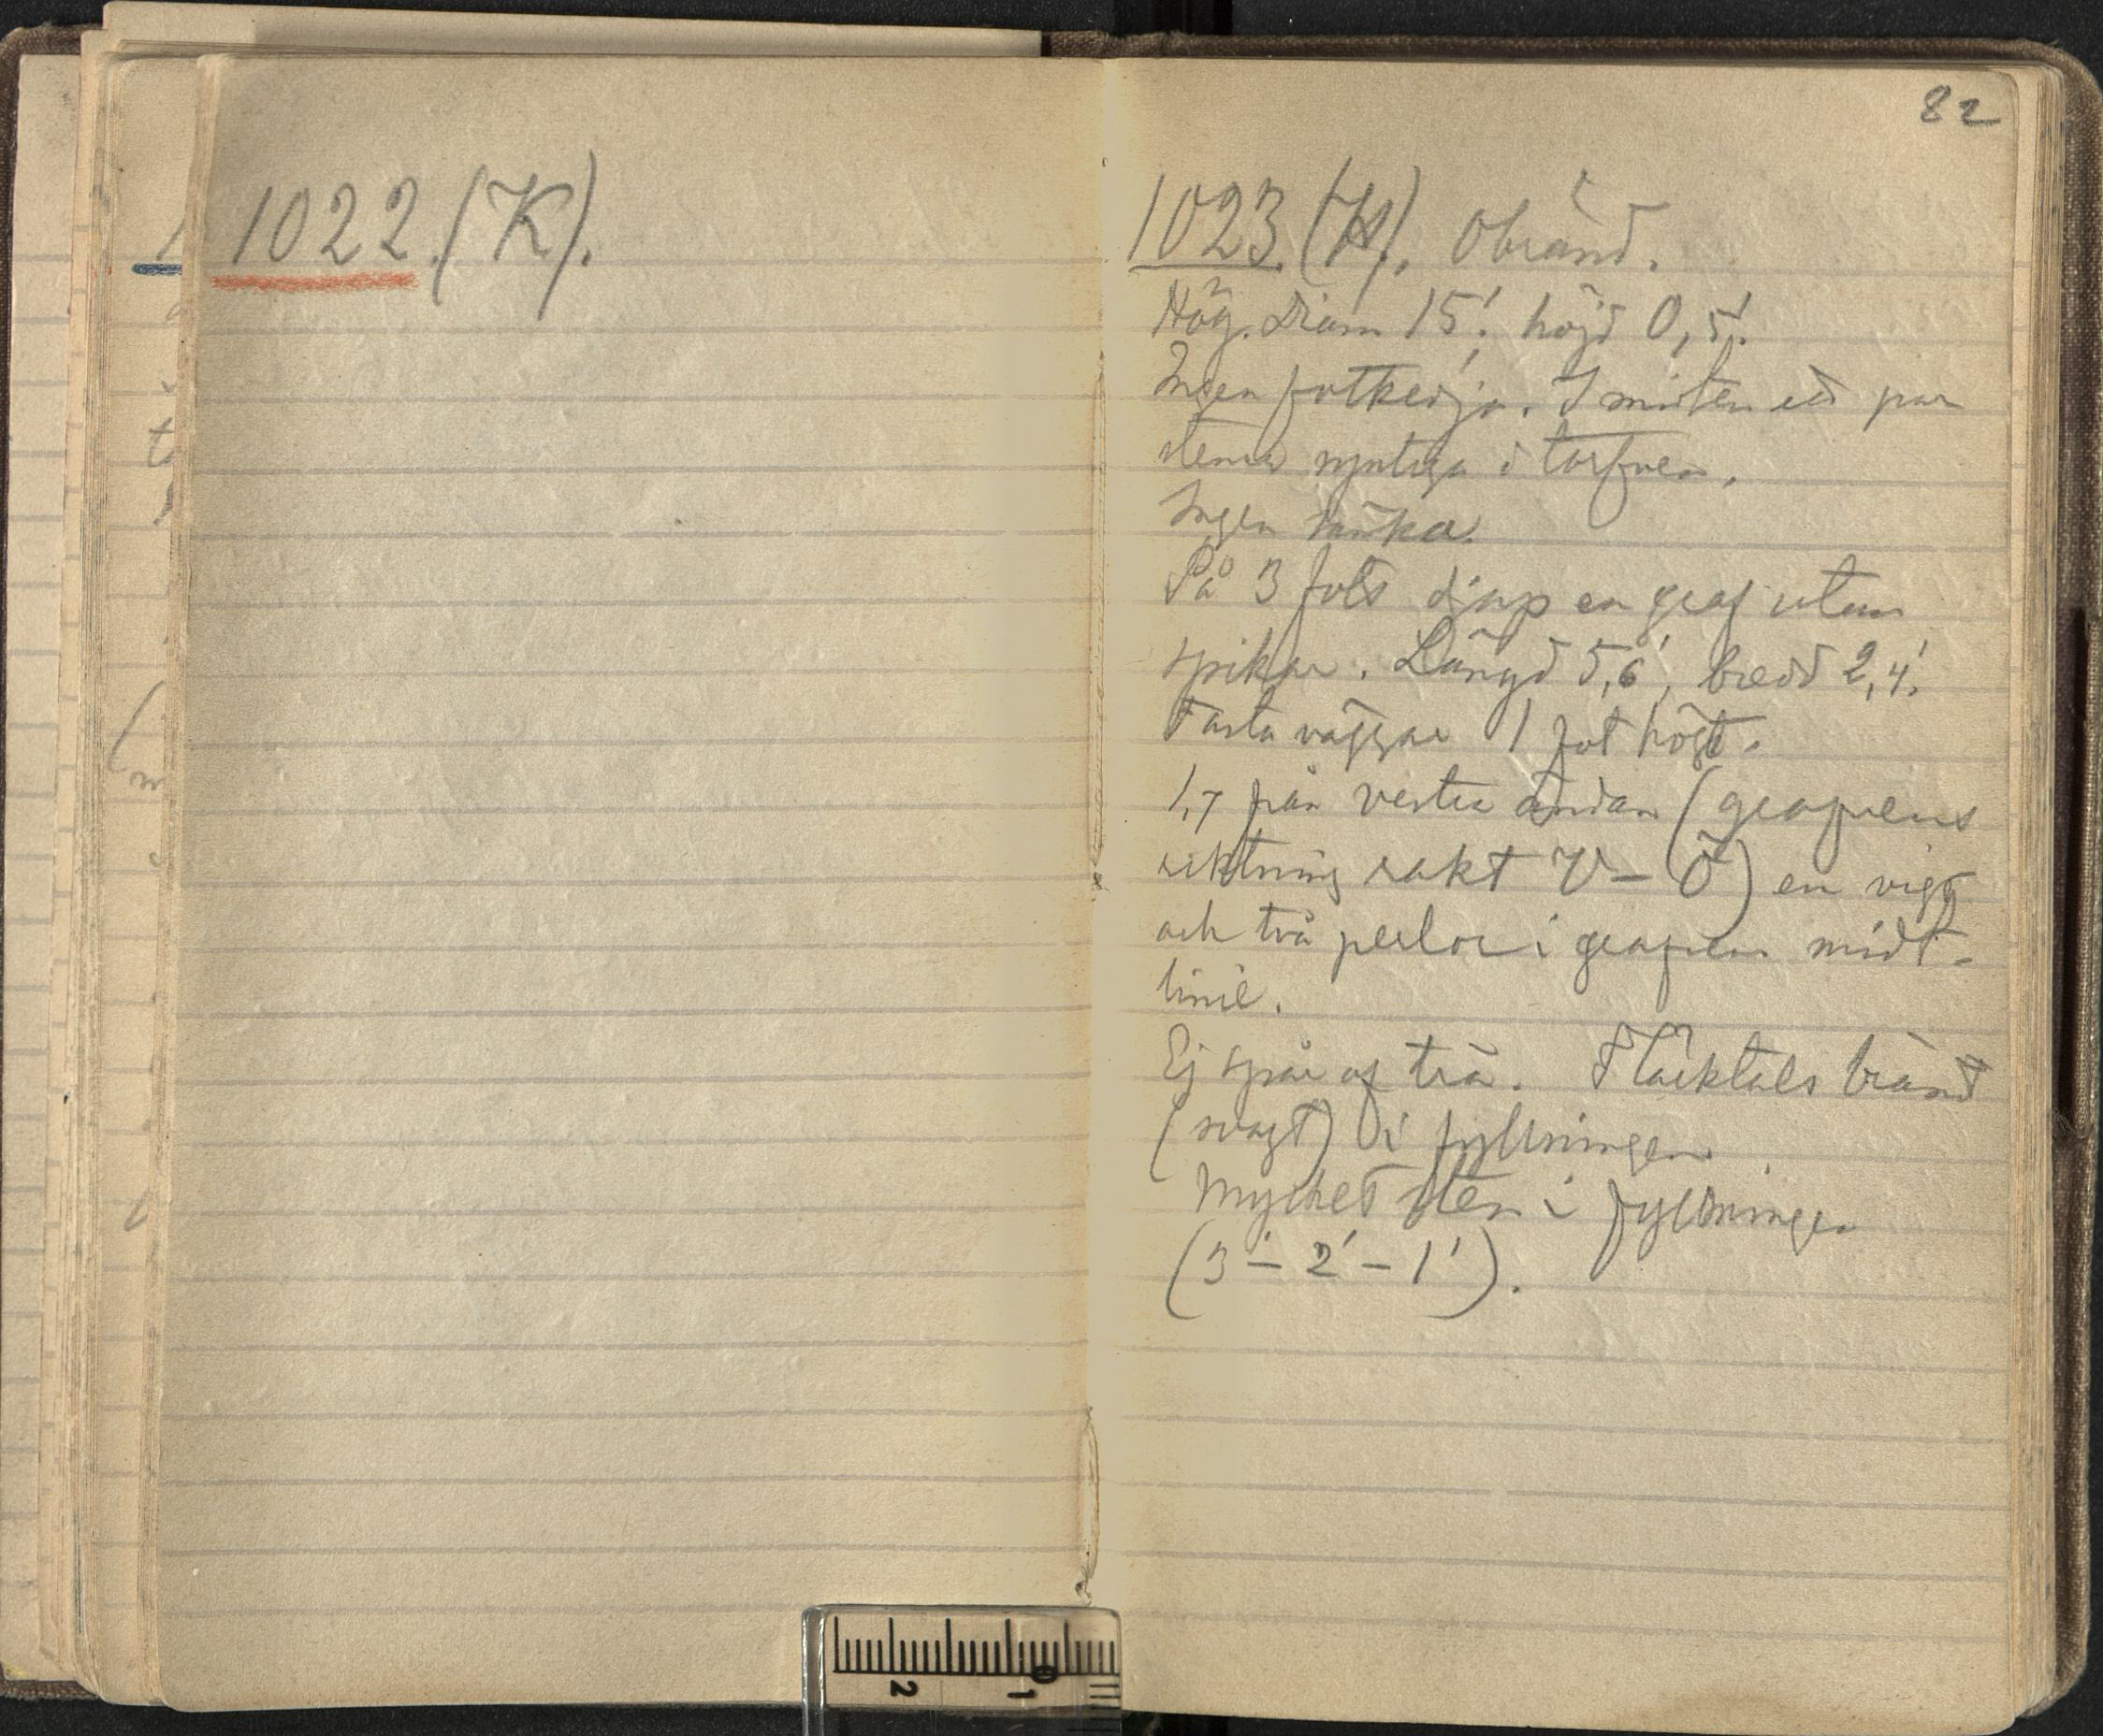 82
1022. (K).
1023. (H). Obränd.
Hög. Diam 15'. höjd 0,5'.
Ingen fotkedja. I midten ett par
stenar synliga i torfven.
Ingen bräka.
På 3 fots djup en graf utan
spikar. Längd 5,6', bredd 2,4'.
Fasta väggar 1 fot högt.
1,7 från vestra ändan (grafvens
riktning rakt V – Ö) en vigt
och två perlor i grafvens midt-
linie.
Ej spår af trä. Fläcktals bränd
(svagt) i fyllningen.
Mycket sten i fyllningen
(3' – 2' – 1').
2
1
0